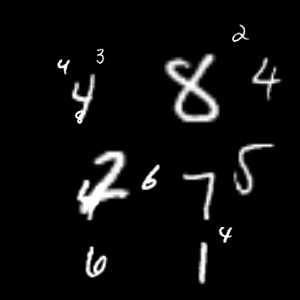 4 3 2
4 8 8 4
2 4 6 7 5
6 1 4